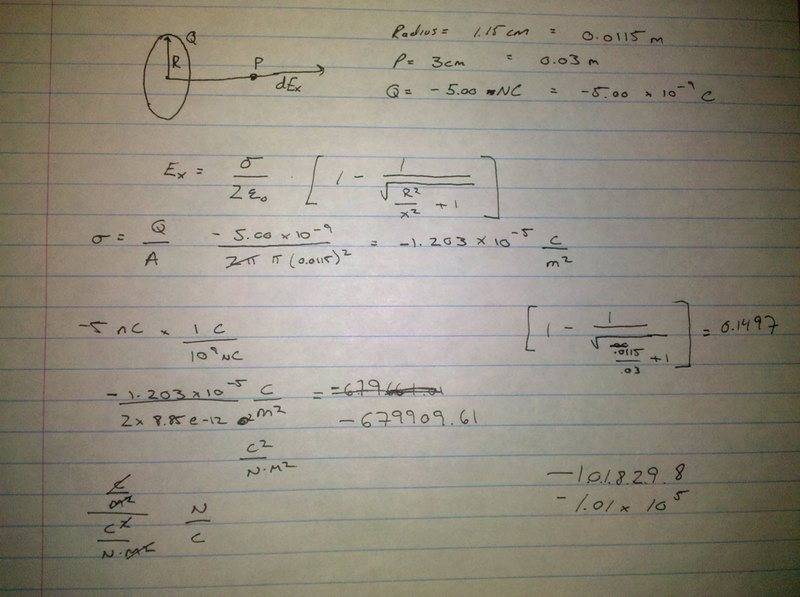 Q
R
P
dEx
Radius = 1.15 cm = 0.0115 m
P = 3cm = 0.03 m
Q = -5.00 NC = -5.00 x 10^-9 C
Ex = σ / 2ε₀ · [ 1 - 1 / √(R²/x² + 1) ]
σ = Q / A   -5.00 x 10^-9 / π (0.0115)² = -1.203 x 10^-5 C/m²
-5 nC x 1 C / 10^9 NC
[ 1 - 1 / √(.0115/.03 + 1) ] = 0.1497
-1.203 x 10^-5 / 2 x 8.85 e-12 C/m² = -679661.01
-679909.61
C² / N·m²
C/m² / C²/N·m²   N/C
-101829.8
-1.01 x 10^5